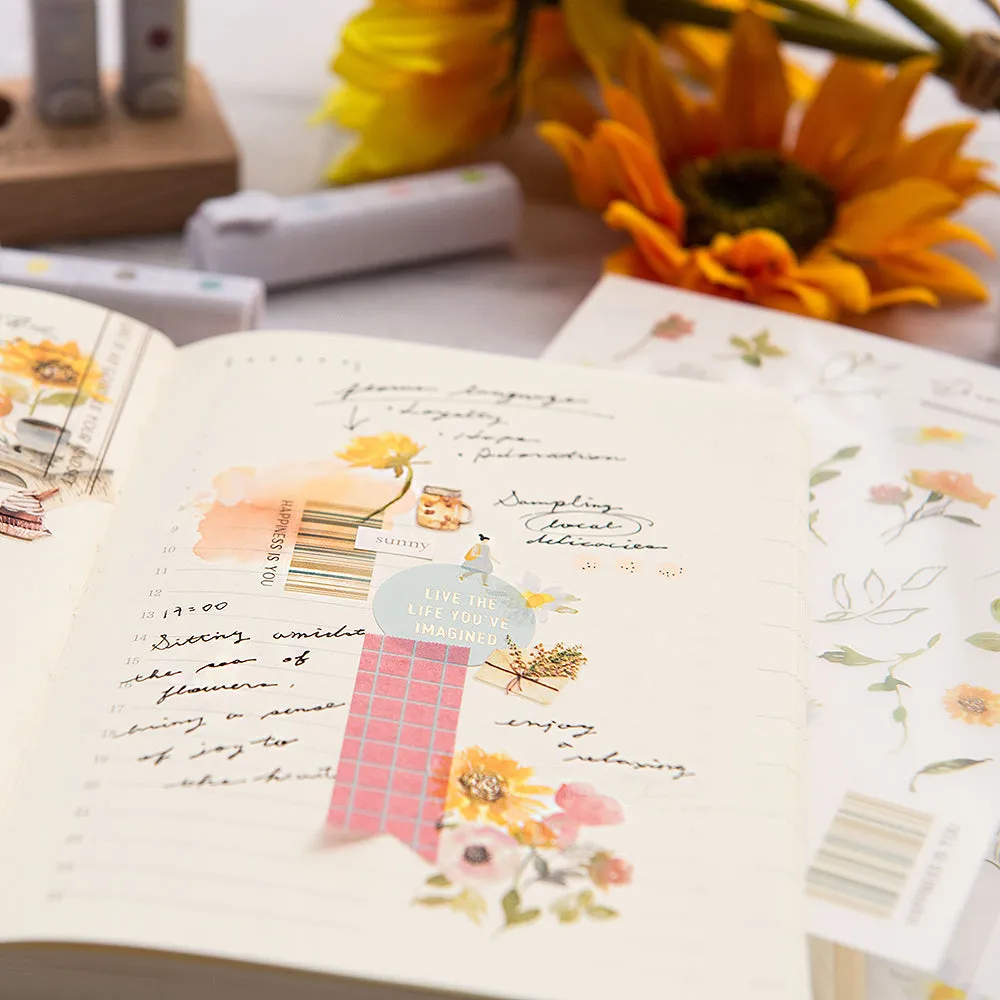 flower language
• Loyalty
• Hope
• Adoration
Sampling
local
delicacies
HAPPINESS IS YOU
sunny
LIVE THE
LIFE YOU'VE
IMAGINED
9
10
11
12
13
14
15
16
17
18
19
20
17:00
Sitting amidst
the sea of
flowers,
bring a sense
of joy to
the heart
enjoy
a
relaxing
HAPPINESS IS YOU